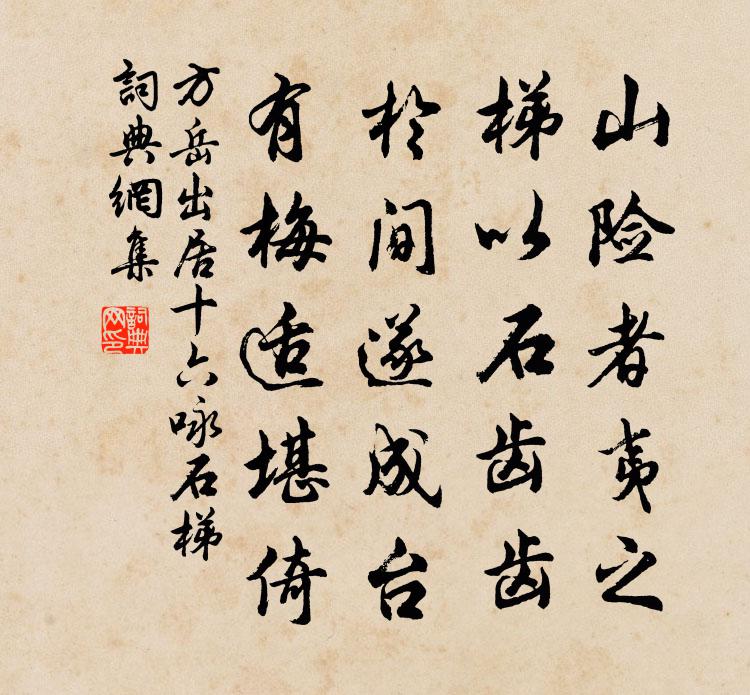 山险者夷之
梯以石齿齿
於间遂成台
有梅适堪倚
方岳出居十六咏石梯
詞典網集
詞典
网印